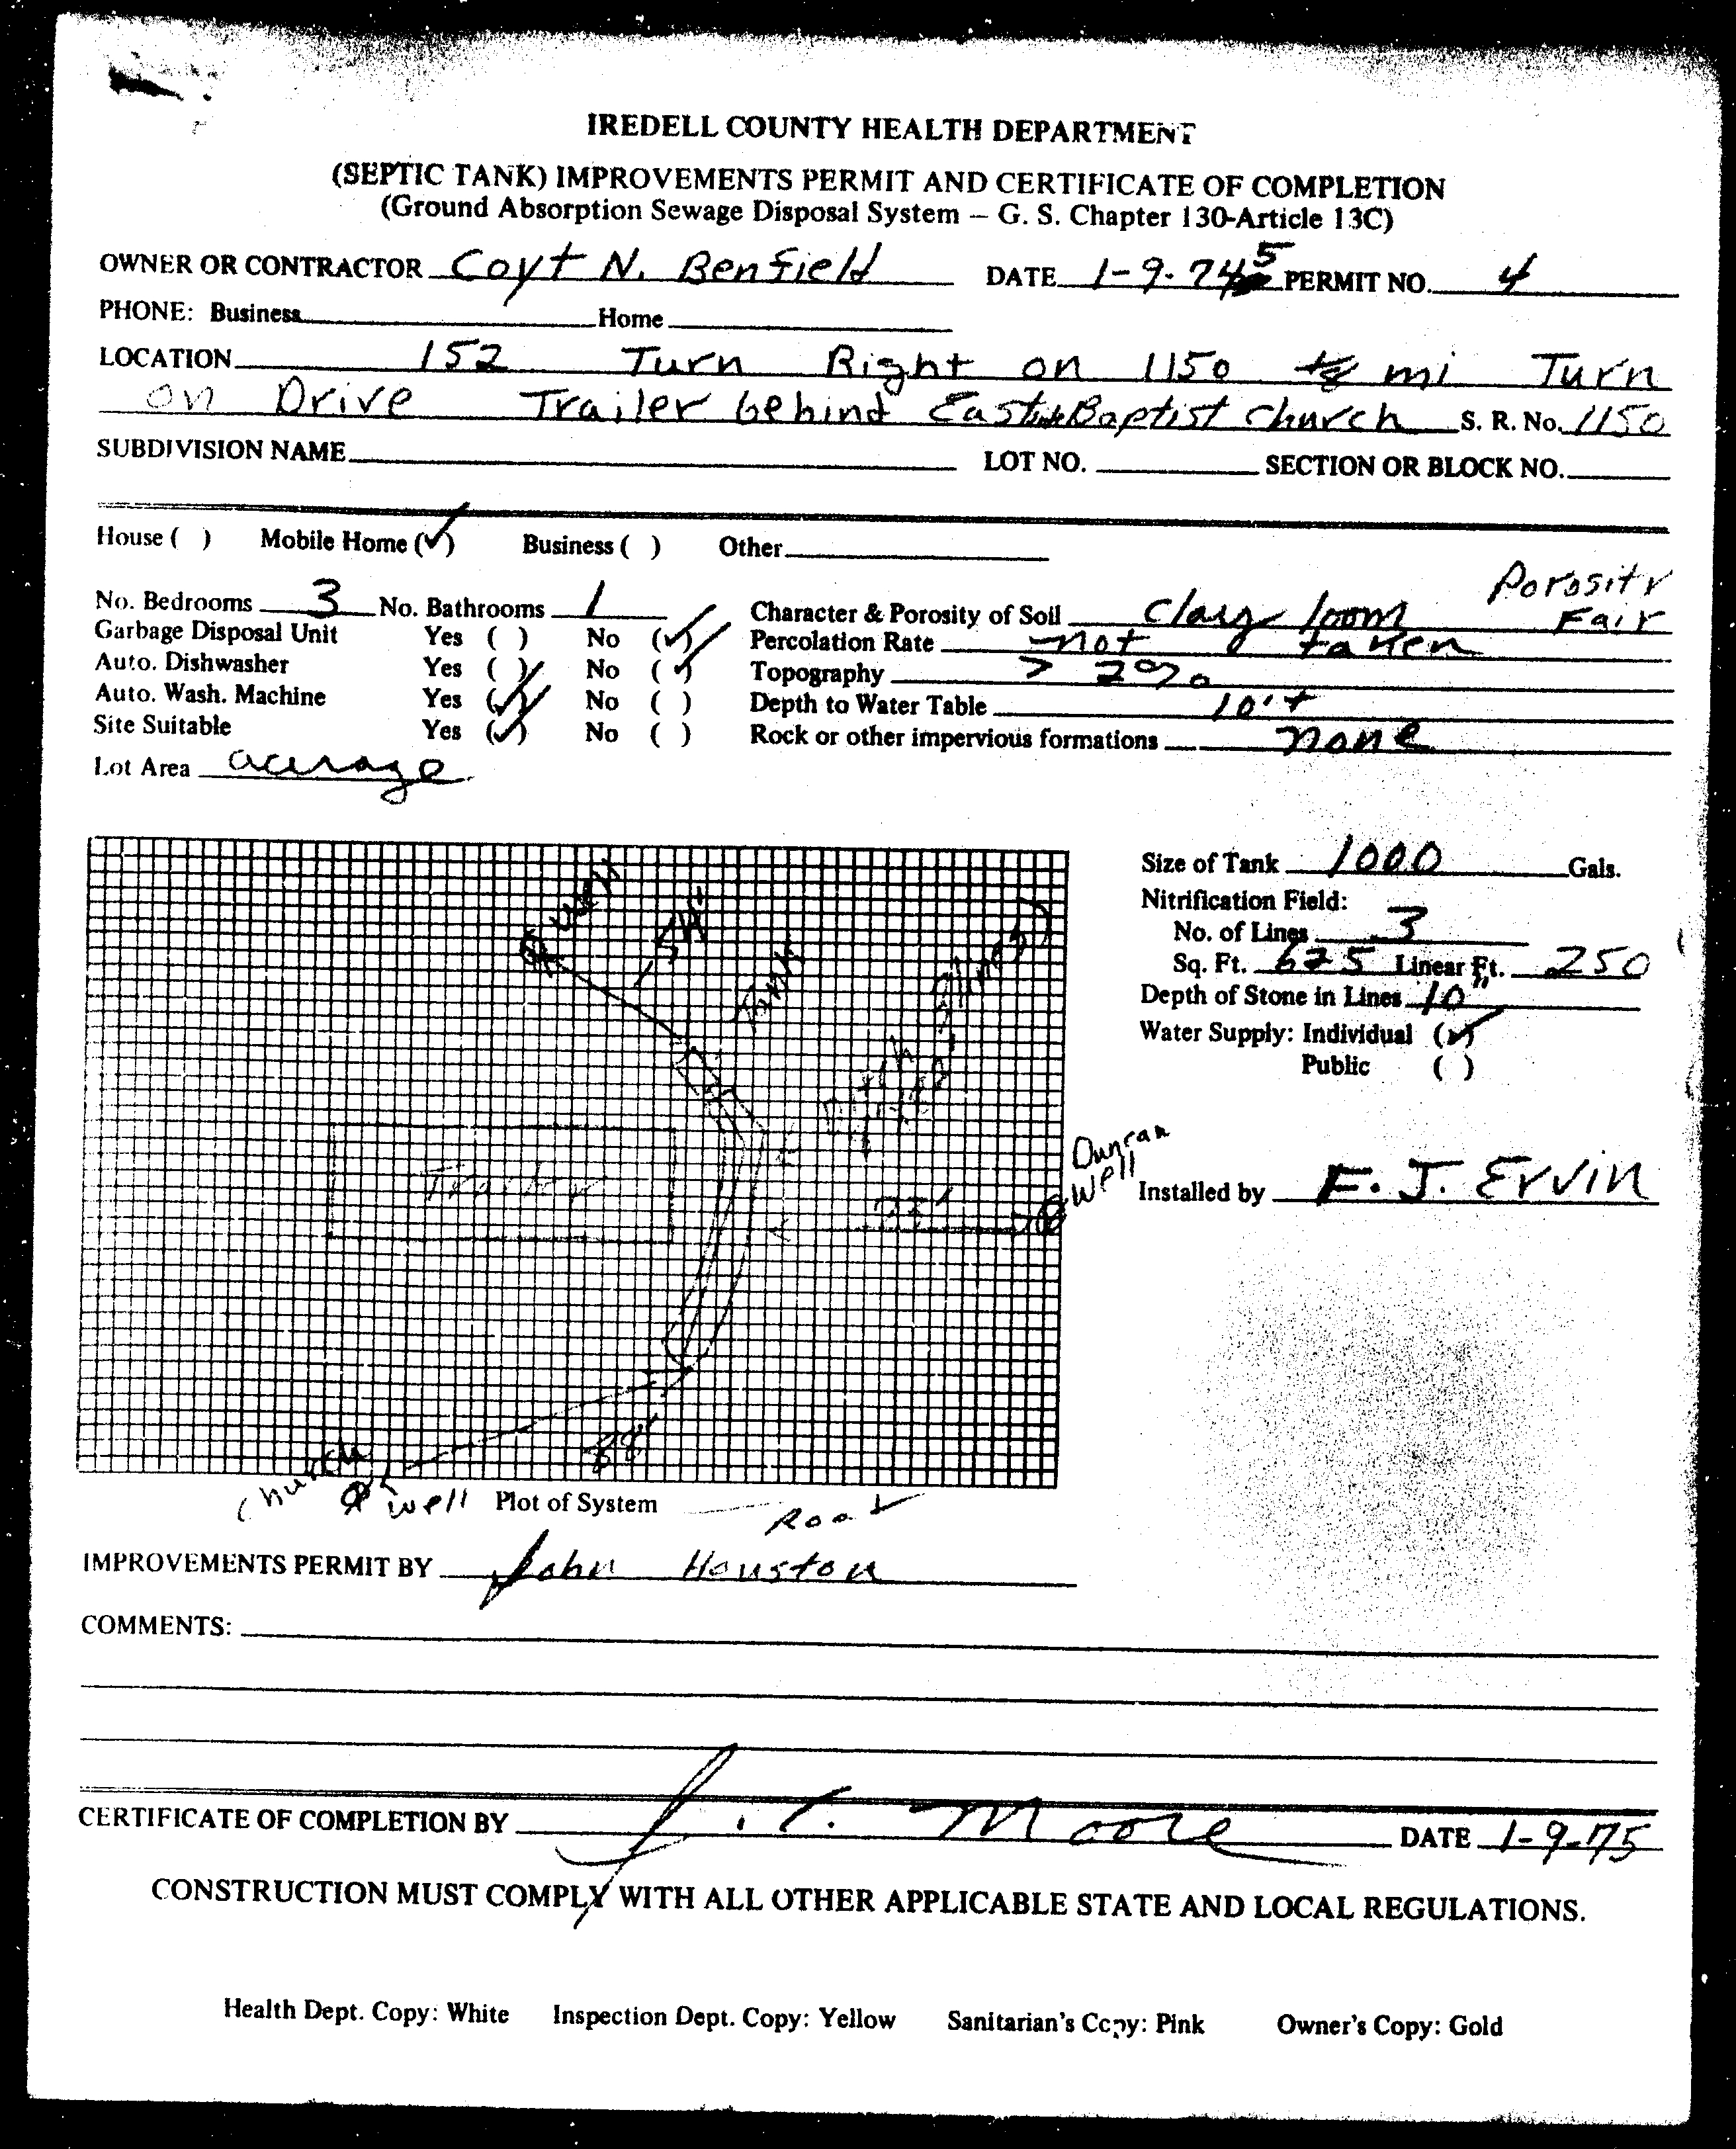 IREDELL COUNTY HEALTH DEPARTMENT
(SEPTIC TANK) IMPROVEMENTS PERMIT AND CERTIFICATE OF COMPLETION
(Ground Absorption Sewage Disposal System – G. S. Chapter 130-Article 13C)
OWNER OR CONTRACTOR Coyt N. Benfield DATE 1-9-745 PERMIT NO. 4
PHONE: Business Home
LOCATION 152 Turn Right on 1150 mi Turn
on Drive Trailer behind Baptist Church S. R. No. 1150
SUBDIVISION NAME LOT NO. SECTION OR BLOCK NO.
House ( ) Mobile Home (✓) Business ( ) Other
Porosity
No. Bedrooms 3 No. Bathrooms 1 Character & Porosity of Soil Clay loom Fair
Garbage Disposal Unit Yes ( ) No (✓) Percolation Rate not taken
Auto. Dishwasher Yes ( ) No (✓) Topography > 2%
Auto. Wash. Machine Yes (✓) No ( ) Depth to Water Table 10'+
Site Suitable Yes (✓) No ( ) Rock or other impervious formations none
Lot Area acerage
Size of Tank 1000 Gals.
Nitrification Field:
No. of Lines 3
Sq. Ft. 625 Linear Ft. 250
Depth of Stone in Lines 10"
Water Supply: Individual (✓)
Public ( )
well
Tank
Trailer
Duncan
well
Installed by F. J. Ervin
88'
Church
well Plot of System Road
IMPROVEMENTS PERMIT BY John Houston
COMMENTS:
CERTIFICATE OF COMPLETION BY J. C. Moore DATE 1-9-75
CONSTRUCTION MUST COMPLY WITH ALL OTHER APPLICABLE STATE AND LOCAL REGULATIONS.
Health Dept. Copy: White Inspection Dept. Copy: Yellow Sanitarian's Copy: Pink Owner's Copy: Gold